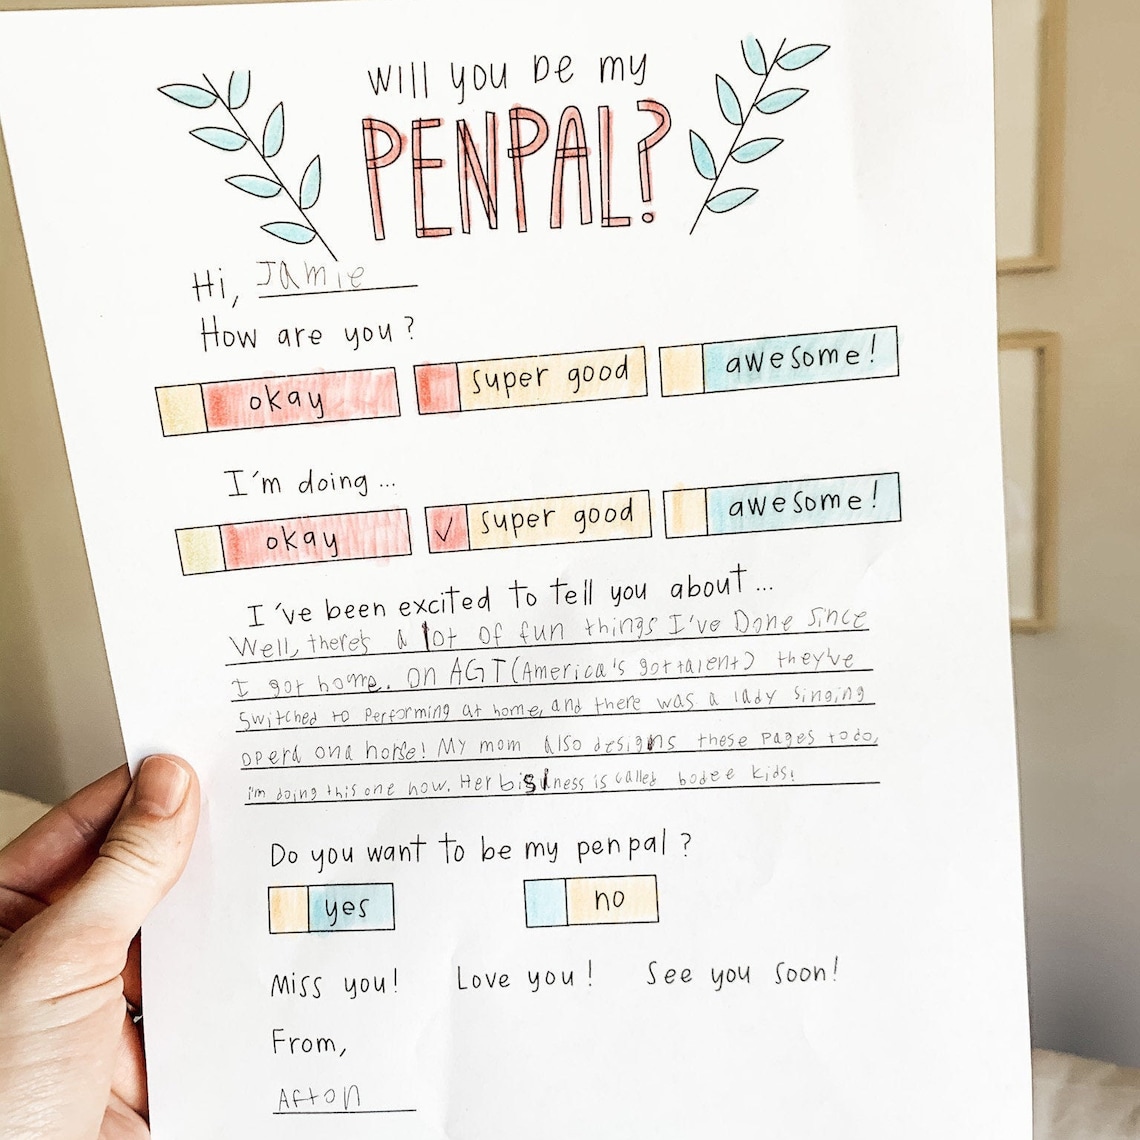 will you be my
PENPAL?
Hi, Jamie
How are you?
okay super good awesome!
I'm doing...
okay ✓ super good awesome!
I've been excited to tell you about...
Well, there's a lot of fun things I've Done since
I got home. on AGT (America's got talent) they've
switched to performing at home, and there was a lady singing
opera on a horse! My mom also designs these pages to do,
i'm doing this one now. Her bisiness is called bodee kids!
Do you want to be my penpal?
yes no
Miss you! Love you! See you soon!
From,
Afton